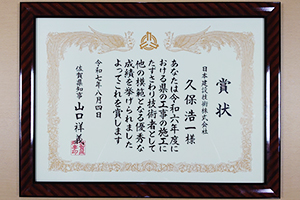 賞状
日本建設技術株式会社
久保浩一様
あなたは令和六年度に
おける県の工事の施工に
たずさわり技術者として
他の模範となる優秀な
成績を挙げられました
よってこれを賞します
令和七年八月四日
佐賀県知事 山口祥義